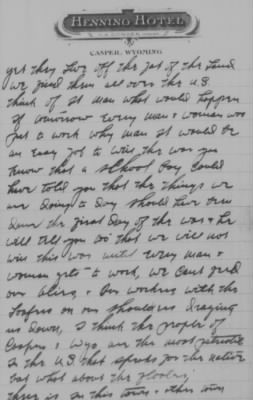 HENNING HOTEL
CASPER, WYOMING
yet they live off the fat of the land
we find them all over the U.S.
think of it man what would happen
if tomorrow every man & woman was
put to work why man it would be
an easy job to win the war you
know that a school boy could
have told you that the things we
are doing to day should have been
done the first day of the war & he
will tell you to that we will not
win this war until every man &
woman gets to work, we cant feed
our allies, & our workers with the
loafers on our shoulders draging
us down, I think the people of
Casper & Wyo are the most patriotic
in the U.S. that speaks for the native
but what about the
there is in this town & other towns